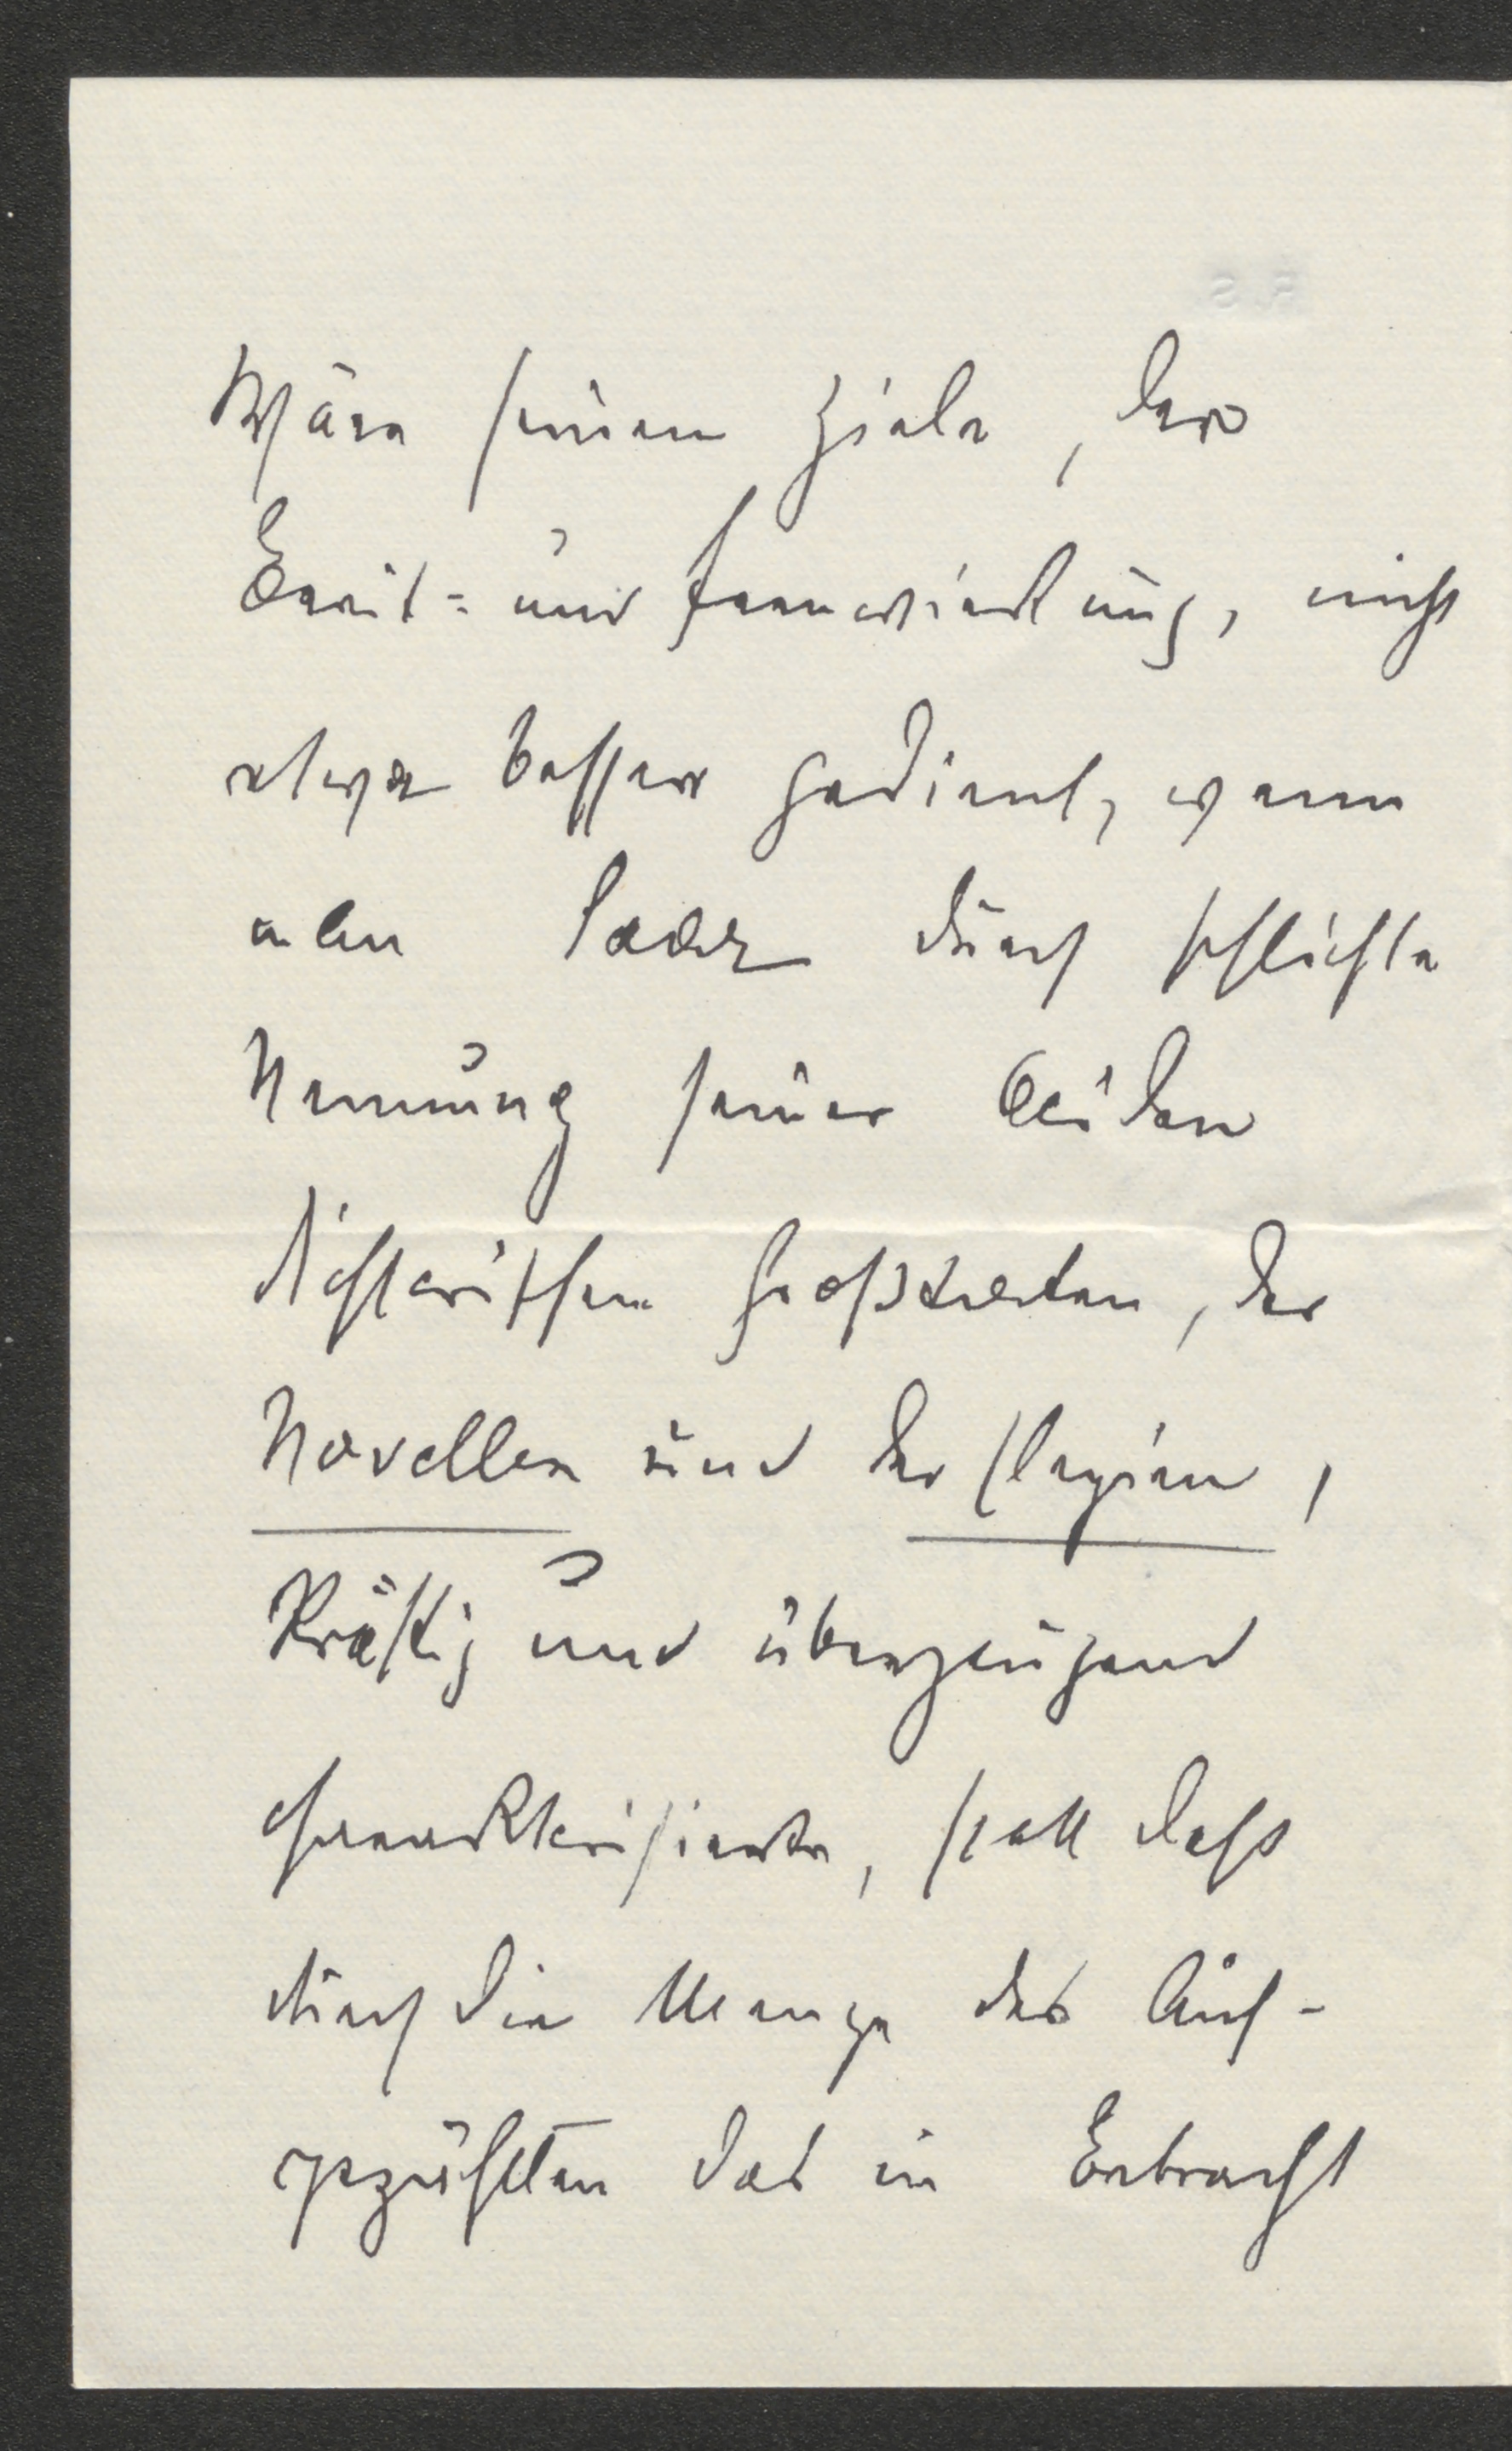 Wäre seinem Ziele, der
Breit- und Fernwirkung, nicht
etwa besser gedient, wenn
man Saar durch schlichte
Nennung seiner beiden
dichterischen Großtaten, der
Novellen und der Elegien,
kräftig und überzeugend
charakterisierte, statt dass
durch die Menge des Auf-
gezählten das in Betracht